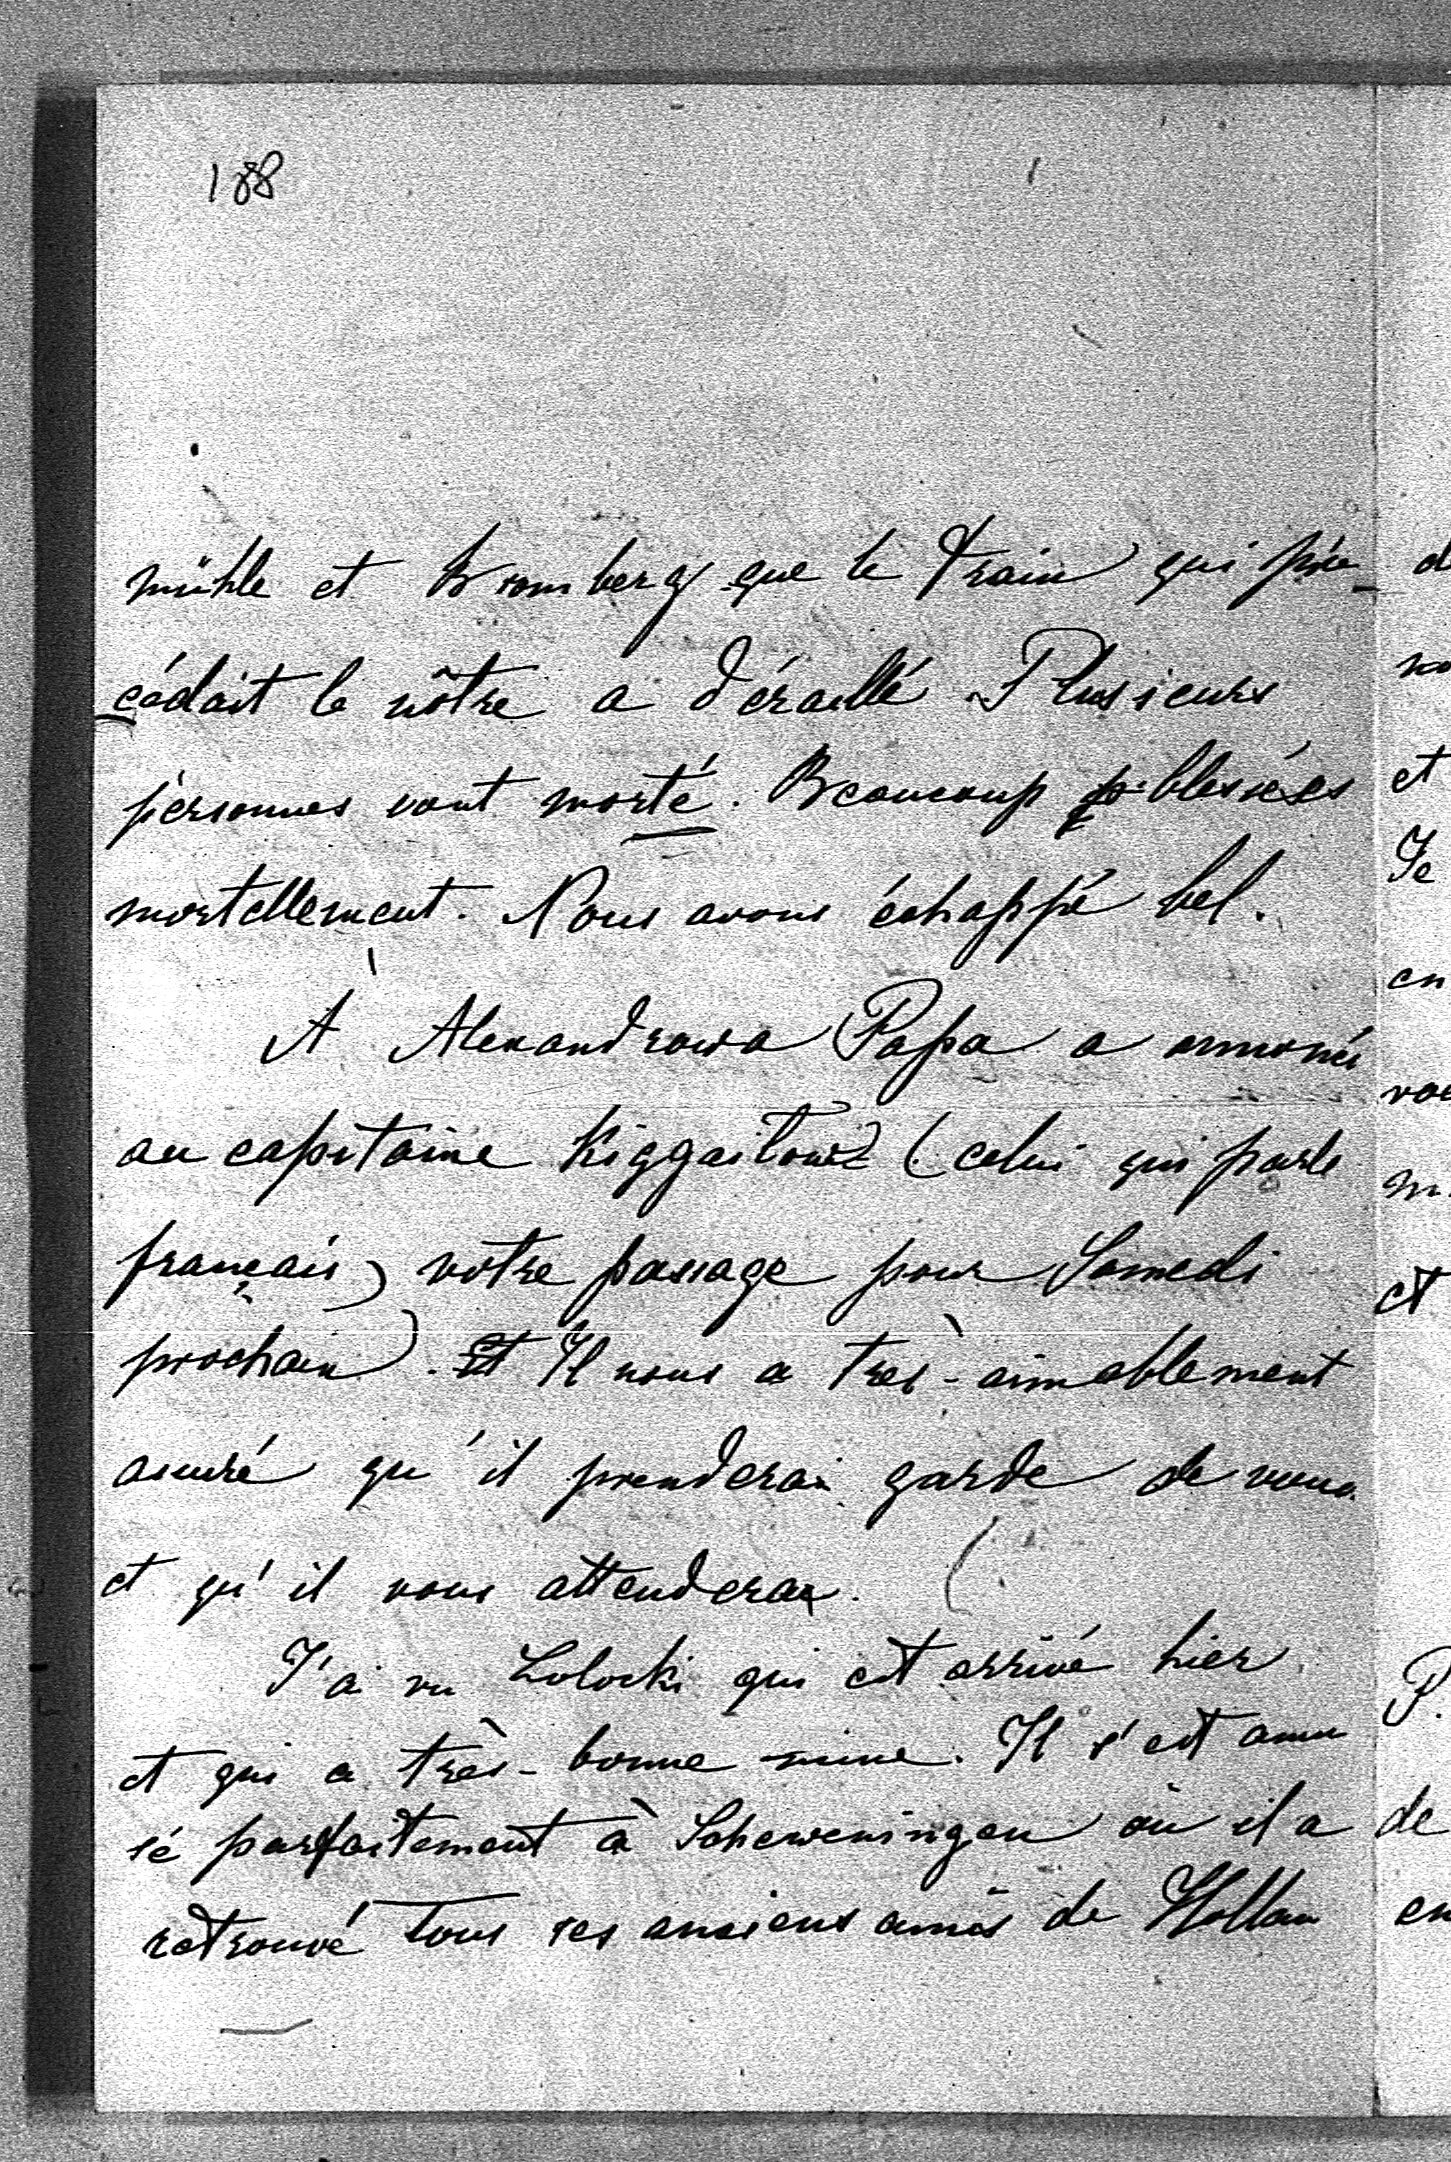 188
mühle et Bromberg que le train qui pré-
cédait le nôtre a déraillé. Plusieurs
personnes sont morté. Beaucoup blessées
mortellement. Nous avons échappé bel.
À Alexandrowa Papa a annoncé
au capitaine Kiggaitowz (celui qui parle
français) votre passage pour Samedi
prochain). Il nous a très-aimablement
assuré qu'il prenderai garde de vous
et qu'il vous attenderai.
J'ai vu Lolocki qui est arrivé hier
et qui a très-bonne mine. Il s'est amu
sé parfaitement à Scheweningen où il a
retrouvé tous ses anciens amis de Hollan